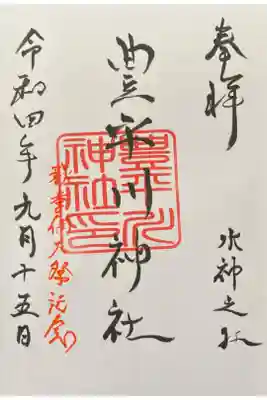 奉拝
水神之
豊平川神社
豊平川神社印
秋季例大祭記念
令和四年九月十五日